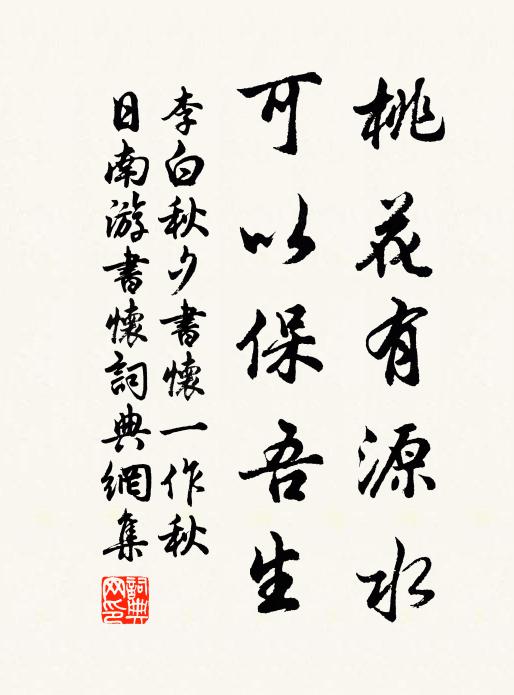 桃花有源水
可以保吾生
李白秋夕書懷一作秋
日南游書懷詞典網集
詞典网印